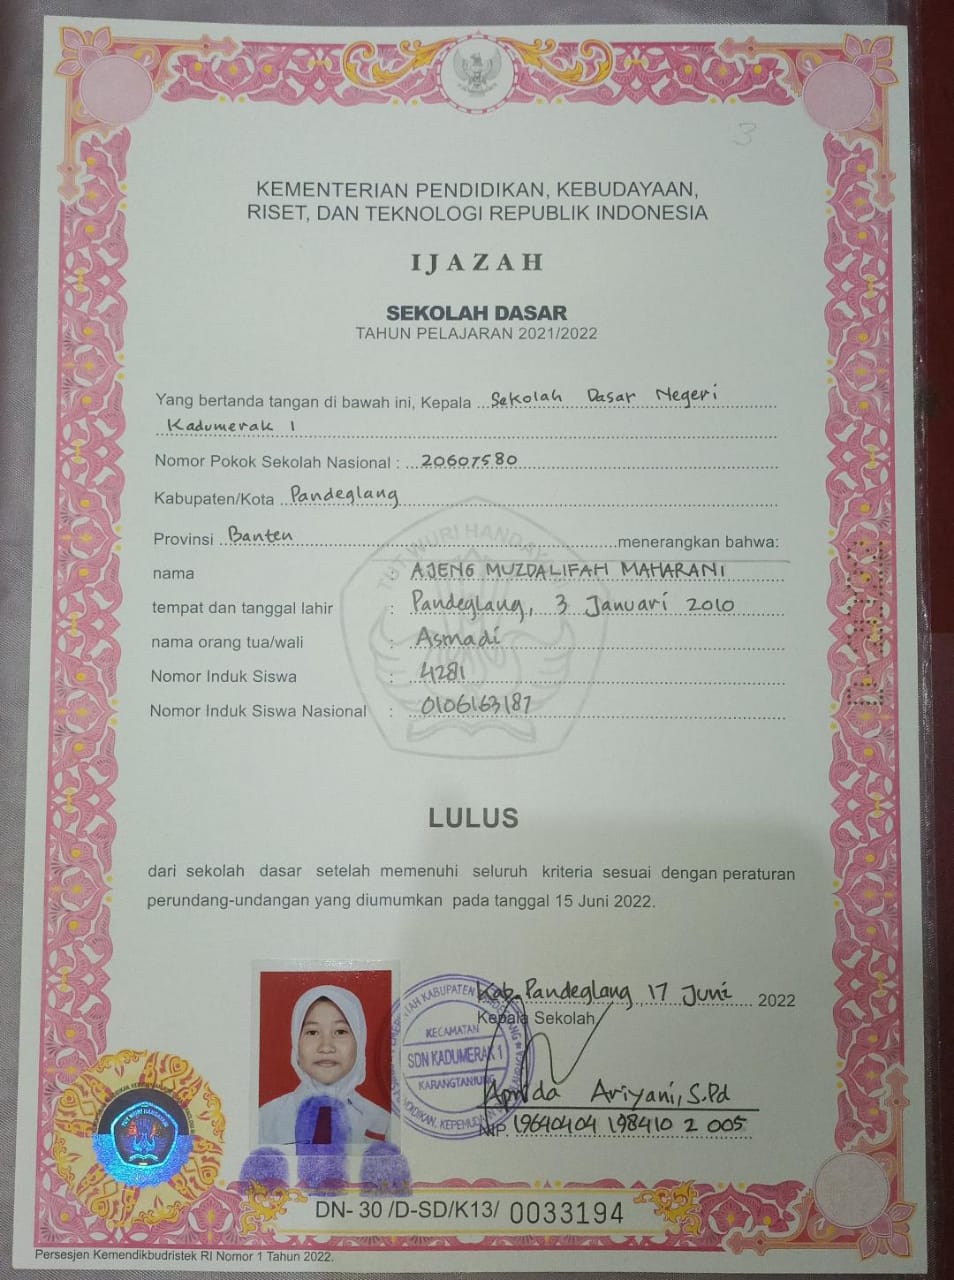 3
KEMENTERIAN PENDIDIKAN, KEBUDAYAAN,
RISET, DAN TEKNOLOGI REPUBLIK INDONESIA
IJAZAH
SEKOLAH DASAR
TAHUN PELAJARAN 2021/2022
Yang bertanda tangan di bawah ini, Kepala Sekolah Dasar Negeri
Kadumerak 1
Nomor Pokok Sekolah Nasional : 20607580
Kabupaten/Kota Pandeglang
Provinsi Banten menerangkan bahwa:
nama : AJENG MUZDALIFAH MAHARANI
tempat dan tanggal lahir : Pandeglang, 3 Januari 2010
nama orang tua/wali : Asmadi
Nomor Induk Siswa : 4281
Nomor Induk Siswa Nasional : 0106163187
TUT WURI HANDAYANI
LULUS
dari sekolah dasar setelah memenuhi seluruh kriteria sesuai dengan peraturan
perundang-undangan yang diumumkan pada tanggal 15 Juni 2022.
Kab. Pandeglang, 17 Juni 2022
Kepala Sekolah,
KECAMATAN
SDN KADUMERAK 1
KARANGTANJUNG
Aprida Ariyani, S.Pd
NIP. 19640404 198410 2 005
TUT WURI HANDAYANI
DN- 30 /D-SD/K13/ 0033194
Persesjen Kemendikbudristek RI Nomor 1 Tahun 2022.